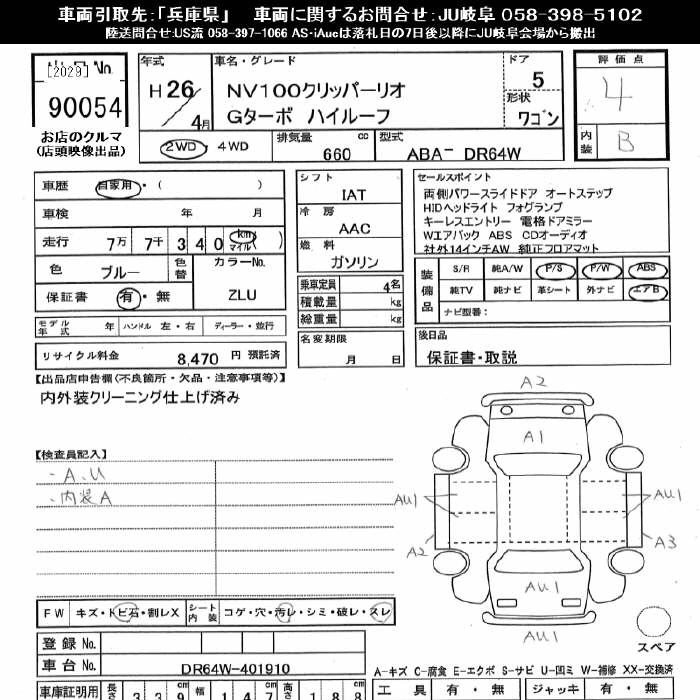 車両引取先：「兵庫県」 車両に関するお問合せ：JU岐阜 058-398-5102
陸送問合せ:US流 058-397-1066 AS-iAucは落札日の7日後以降にJU岐阜会場から搬出
出品 No.
[2029]
90054
お店のクルマ
(店頭映像出品)
年式
H 26/4月
車名・グレード
NV100クリッパーリオ
Gターボ ハイルーフ
ドア
5
形状
ワゴン
2WD・4WD
排気量 660 cc
型式 ABA- DR64W
評価点
4
内装 B
車歴 自家用・( )
車検 年 月
走行 7万 7千 3 4 0 km マイル( )
色 ブルー 色替
カラーNo.
ZLU
保証書 有・無
シフト
IAT
冷房
AAC
燃料
ガソリン
乗車定員 4名
積載量 kg
総重量 kg
セールスポイント
両側パワースライドドア オートステップ
HIDヘッドライト フォグランプ
キーレスエントリー 電格ドアミラー
Wエアバック ABS CDオーディオ
社外14インチAW 純正フロアマット
装備品
S/R 純A/W P/S P/W ABS
純TV 純ナビ 革シート 外ナビ エアB
ナビ型番：
モデル年式 年 ハンドル 左・右 ディーラー・並行
名変期限
月 日
後日品
保証書・取説
リサイクル料金 8,470 円 預託済
【出品店申告欄(不良箇所・欠品・注意事項等)】
内外装クリーニング仕上げ済み
【検査員記入】
・A、U
・内装A
A2
A1
AU1
AU1
A2
A3
AU1
AU1
スペア
FW キズ・トビ石・割レX シート内装 コゲ・穴・汚レ・シミ・破レ・スレ
登録 No.
車台 No. DR64W-401910
A-キズ C-腐食 E-エクボ S-サビ U-凹ミ W-補修 XX-交換済
車庫証明用 長さ 3 3 9 cm 幅 1 4 7 cm 高さ 1 8 8 cm
工具 有・無 ジャッキ 有・無